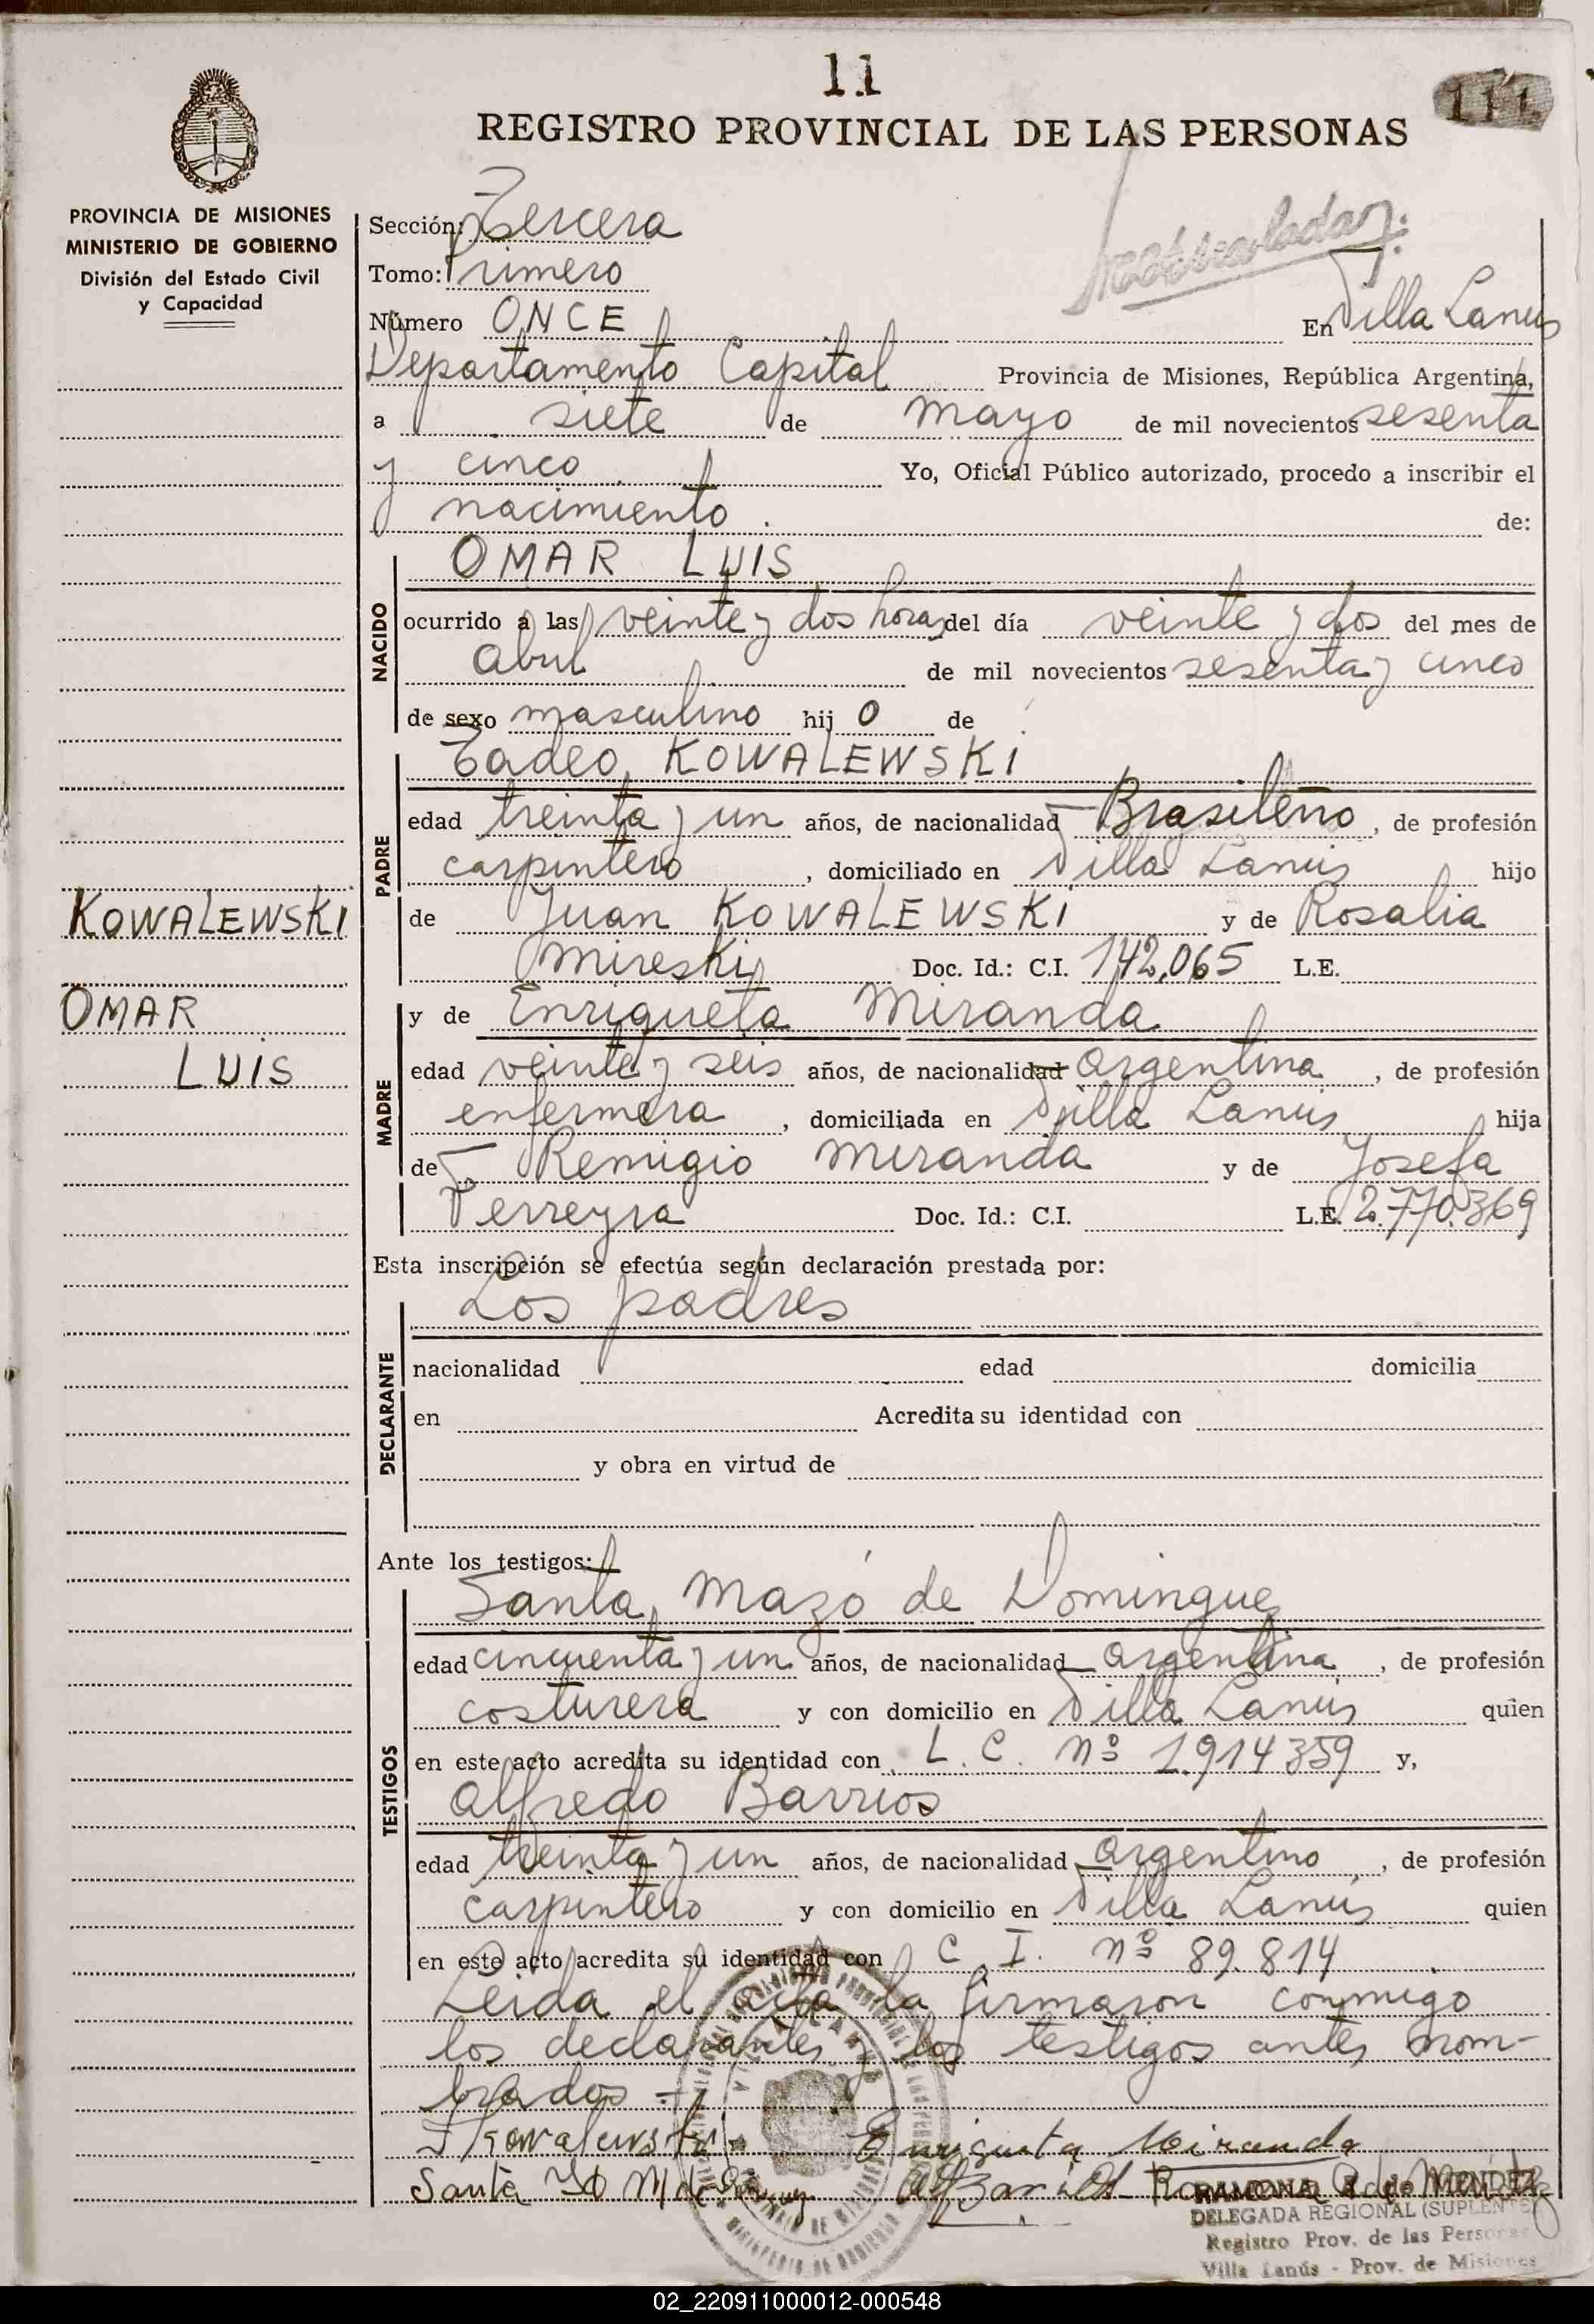 11
111
REGISTRO PROVINCIAL DE LAS PERSONAS
PROVINCIA DE MISIONES
MINISTERIO DE GOBIERNO
División del Estado Civil
y Capacidad
Sección: Tercera
Tomo: Primero
Número ONCE En Villa Lanus
Departamento Capital Provincia de Misiones, República Argentina,
a siete de mayo de mil novecientos sesenta
y cinco Yo, Oficial Público autorizado, procedo a inscribir el
nacimiento. de:
OMAR LUIS
NACIDO
ocurrido a las veinte y dos horas del día veinte y dos del mes de
Abril de mil novecientos sesenta y cinco
de sexo masculino hij o de
Tadeo KOWALEWSKI
PADRE
edad treinta y un años, de nacionalidad Brasileño, de profesión
carpintero, domiciliado en Villa Lanus hijo
de Juan KOWALEWSKI y de Rosalia
Mireski Doc. Id.: C.I. 142.065 L.E.
KOWALEWSKI
OMAR
LUIS
y de Enriqueta Miranda
MADRE
edad veinte y seis años, de nacionalidad argentina, de profesión
enfermera, domiciliada en Villa Lanus hija
de Remigio Miranda y de Josefa
Ferreyra Doc. Id.: C.I. L.E. 2.770.369
Esta inscripción se efectúa según declaración prestada por:
Los padres
DECLARANTE
nacionalidad edad domicilia
en Acredita su identidad con
y obra en virtud de
Ante los testigos:
Santa Mazó de Domingue
TESTIGOS
edad cincuenta y un años, de nacionalidad argentina, de profesión
costurera y con domicilio en Villa Lanus quien
en este acto acredita su identidad con L. C. nº 1.914359 y,
Alfredo Barrios
edad treinta y un años, de nacionalidad argentino, de profesión
carpintero y con domicilio en Villa Lanús quien
en este acto acredita su identidad con C I. nº 89.814
Leida el acta la firmaron conmigo
los declarantes y los testigos antes nom-
brados -
T Kowalewski Enriqueta Miranda
Santa M de
RAMONA de MENDEZ
DELEGADA REGIONAL (SUPLENTE)
Registro Prov. de las Personas
Villa Lanús - Prov. de Misiones
02_220911000012-000548